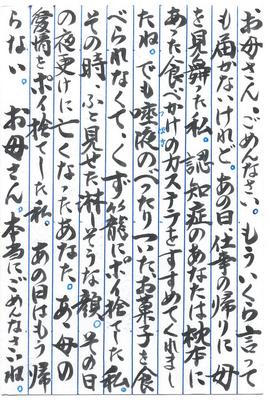 お母さん、ごめんなさい。もういくら言って
も届かないけれど。あの日、仕事の帰りに母
を見舞った私。認知症のあなたは枕本に
あった食べかけのカステラをすすめてくれまし
たね。でも唾液のべったりついたお菓子を食
べられなくて、くず籠にポイ捨てした私。
その時、ふと見せた淋しそうな顔。その日
の夜更けに亡くなったあなた。あゝ母の
愛情をポイ捨てした私。あの日はもう帰
らない。お母さん。本当にごめんなさいね。